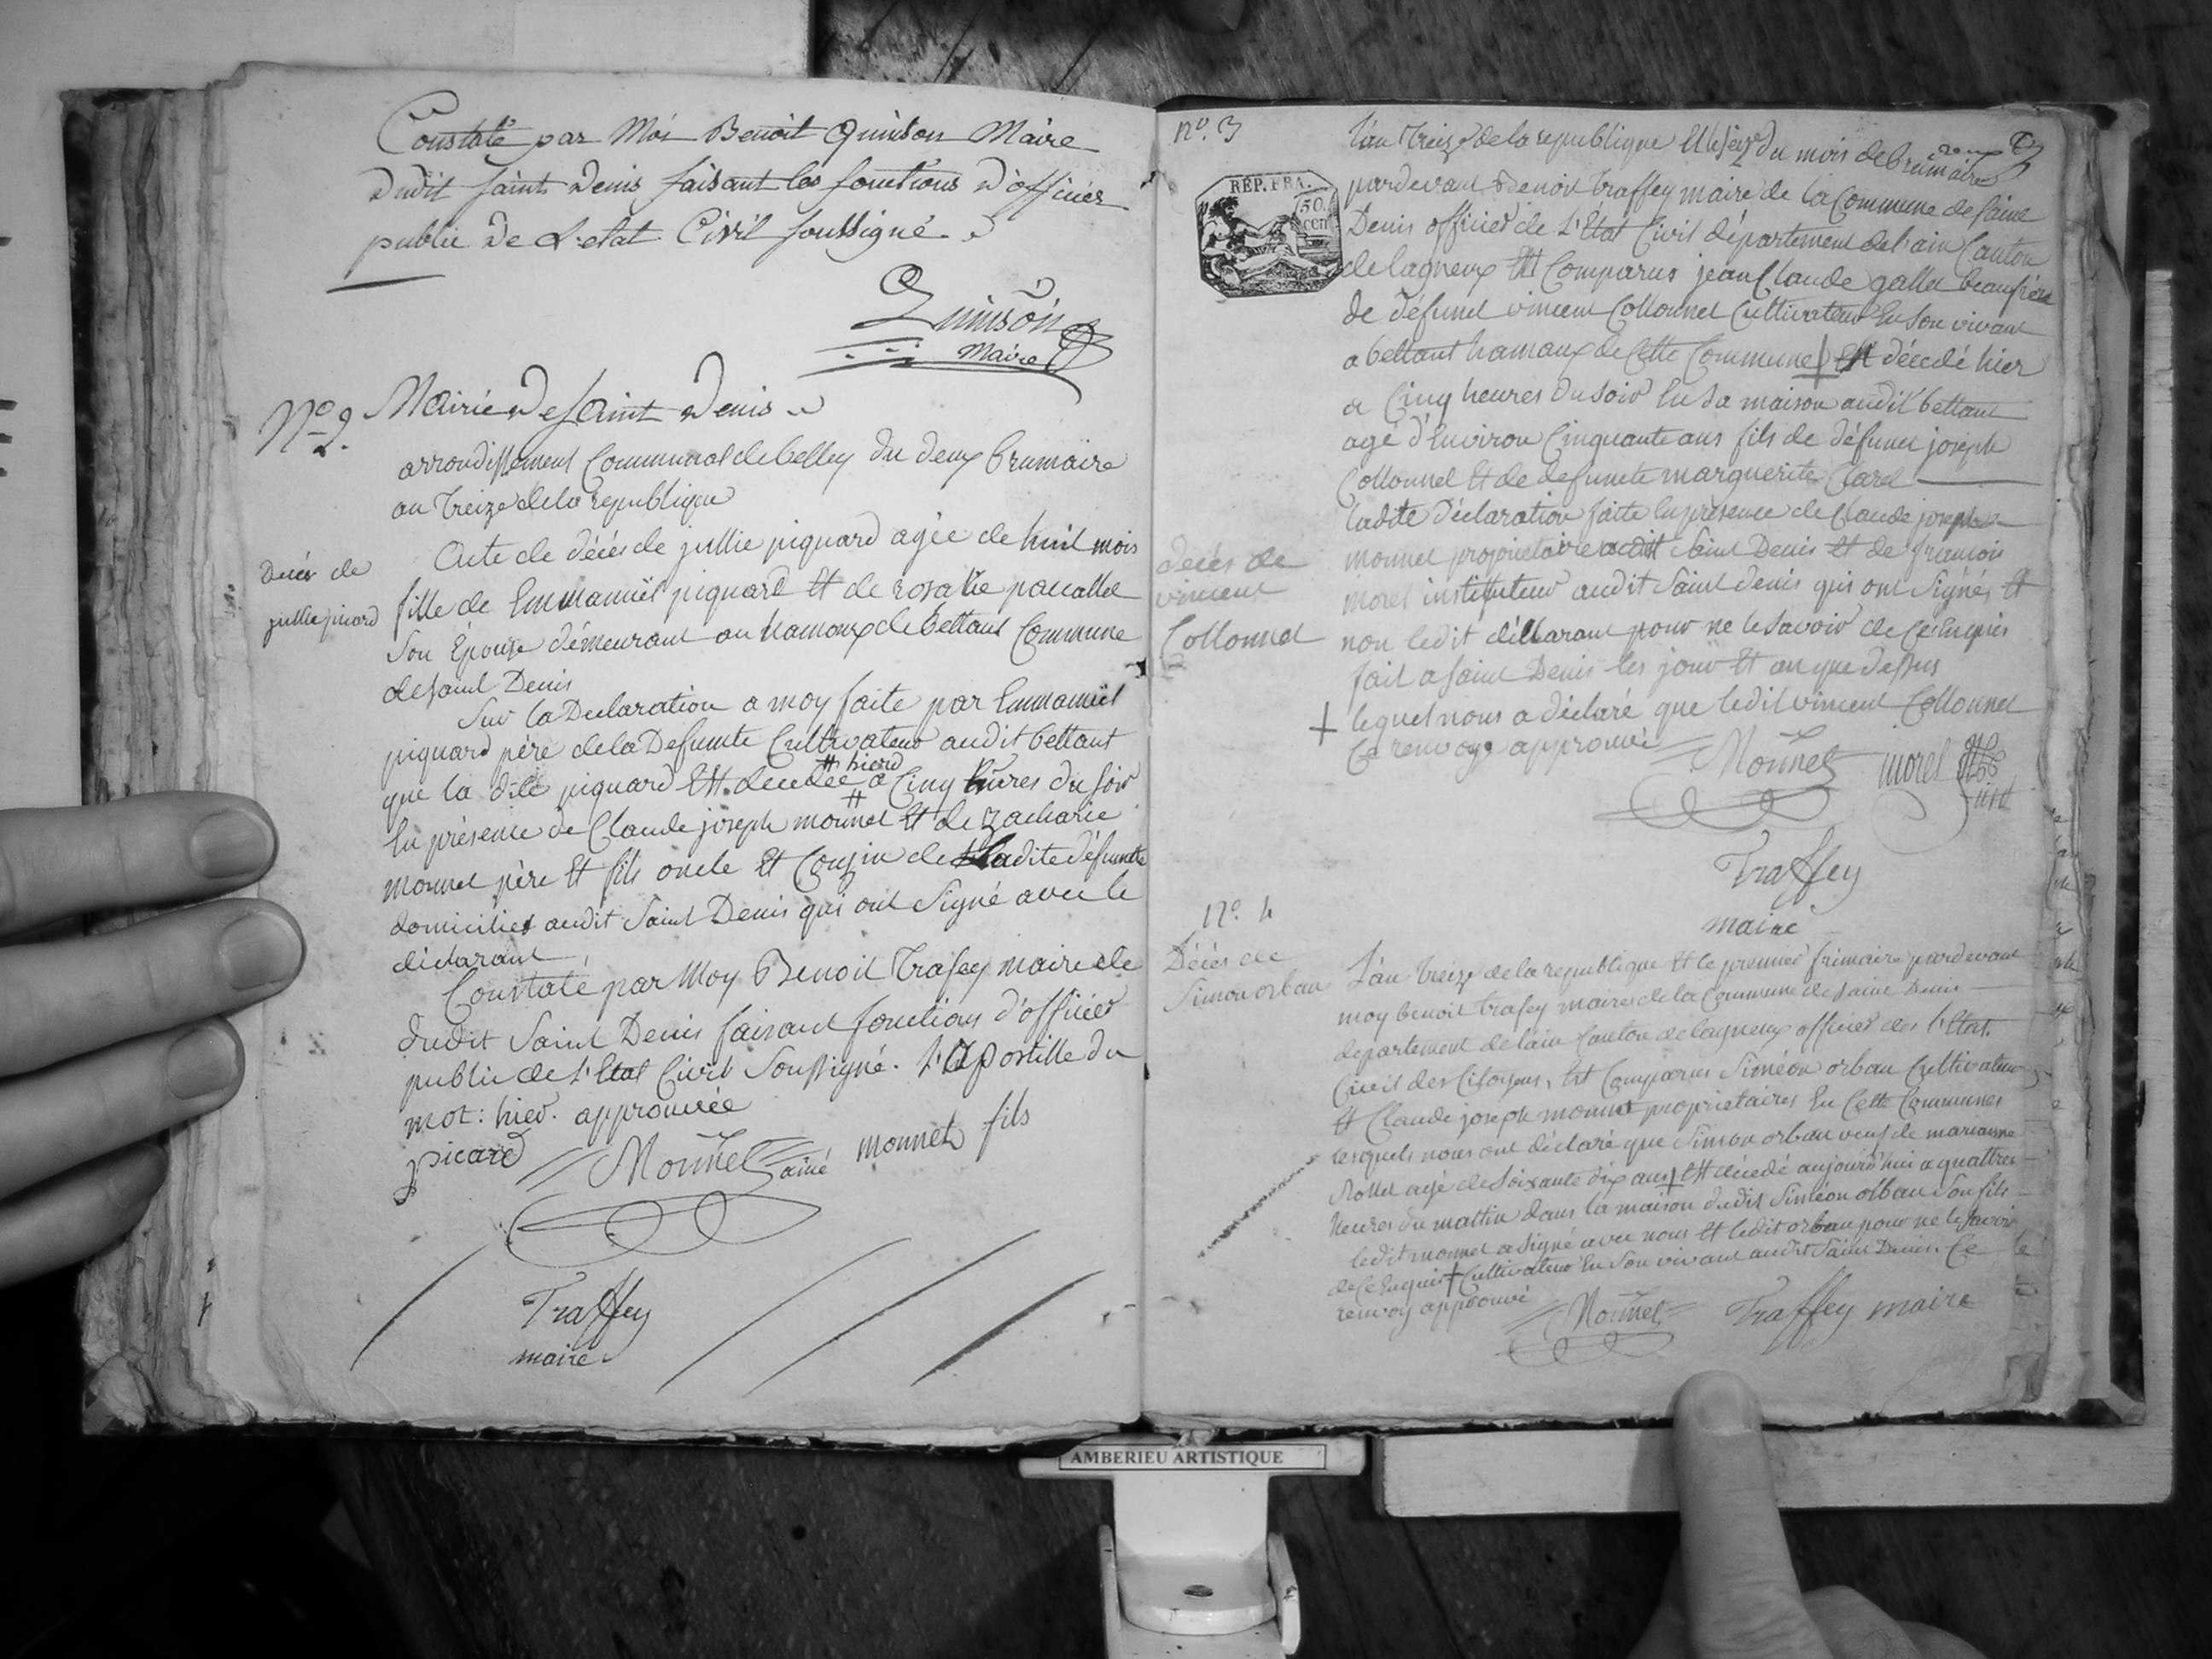 Constaté par Moi Benoit Quinson Maire
dudit saint Denis faisant les fonctions d'officier
public de L'etat Civil soussigné.
Quinson
Maire
No 2. Mairie de saint Denis
arrondissement Communal de belley du deux brumaire
an treize de la republique
decés de
jullie picard
Acte de décés de jullie piquard agée de huit mois
fille de Emmanuël piquard et de rosalie
Son Épouse démeurant au hamoux de bettant Commune
de saint Denis
Sur la Declaration a moy faite par Emmanuël
piquard père de la Defunte Cultivateur audit bettant
que la dite piquard Est decedée # a Cinq heures du soir
# hierd
En présence de Claude joseph monnet Et de zacharie
monnet père Et fils oncle Et Couzin de ladite défuncte
domiciliés audit Saint Denis qui ont Signé avec le
déclarant
Constaté par Moy Benoit Trafey maire de
dudit Saint Denis faisant fonctions d'officier
public de L'Etat Civil Soussigné. L'apostille du
mot: hier. approuvée
picard Monnet ainé monnet fils
Traffey
maire
No. 3
REP. FRA.
50
CEN
L'an treize de la republique Et le seize du mois de brumaire
pardevant Benoit Traffey maire de la Commune de saint
Denis officier de L'État Civil département de l'ain Canton
de lagneux Est Comparus jean Claude gallet beaufrère
de défunct vincent Collonnel Cultivateur En son vivant
a bettant hamaux de Cette Commune + Est décédé hier
a Cinq heures du soir En sa maison audit bettant
agé d'Environ Cinquante ans fils de défunct joseph
Collonnel Et de defuncte marguerite Claret
decés de
vincent
Collonnel
ladite déclaration faite En présence de Claude joseph
monnet propriétaire audit Saint Denis et de francois
morel instituteur audit Saint denis qui ont Signés Et
non ledit déclarant pour ne le savoir de Ce Enquis
fait a saint Denis les jour Et an que dessus
+ lequel nous a déclaré que ledit vincent Collonnel
Ce renvoye approuvé
Monnet morel
Traffey
maire
No. 4
Décés de
Simon orban
L'an treize de la republique Et le premier frimaire pardevant
moy benoit trafey maire de la Commune de saint Denis
departement de lain Canton de lagneux officier de l'Etat
Civil des Citoyens, Est Comparus Siméon orban Cultivateur
Et Claude joseph monnet propriétaires En Cette Communes
lesquels nous ont déclaré que Simon orban veuf de marianne
agé de Soixante dix ans + Est décédé aujourd'hui a quattres
heures du mattin dans la maison dudit Siméon orban Son fils
ledit monnet a Signé avec nous Et ledit orban pour ne le savoir
de Ce Enquis + Cultivateur En Son vivant audit Saint Denis. Ce
renvoy approuvé
Monnet Traffey maire
AMBERIEU ARTISTIQUE